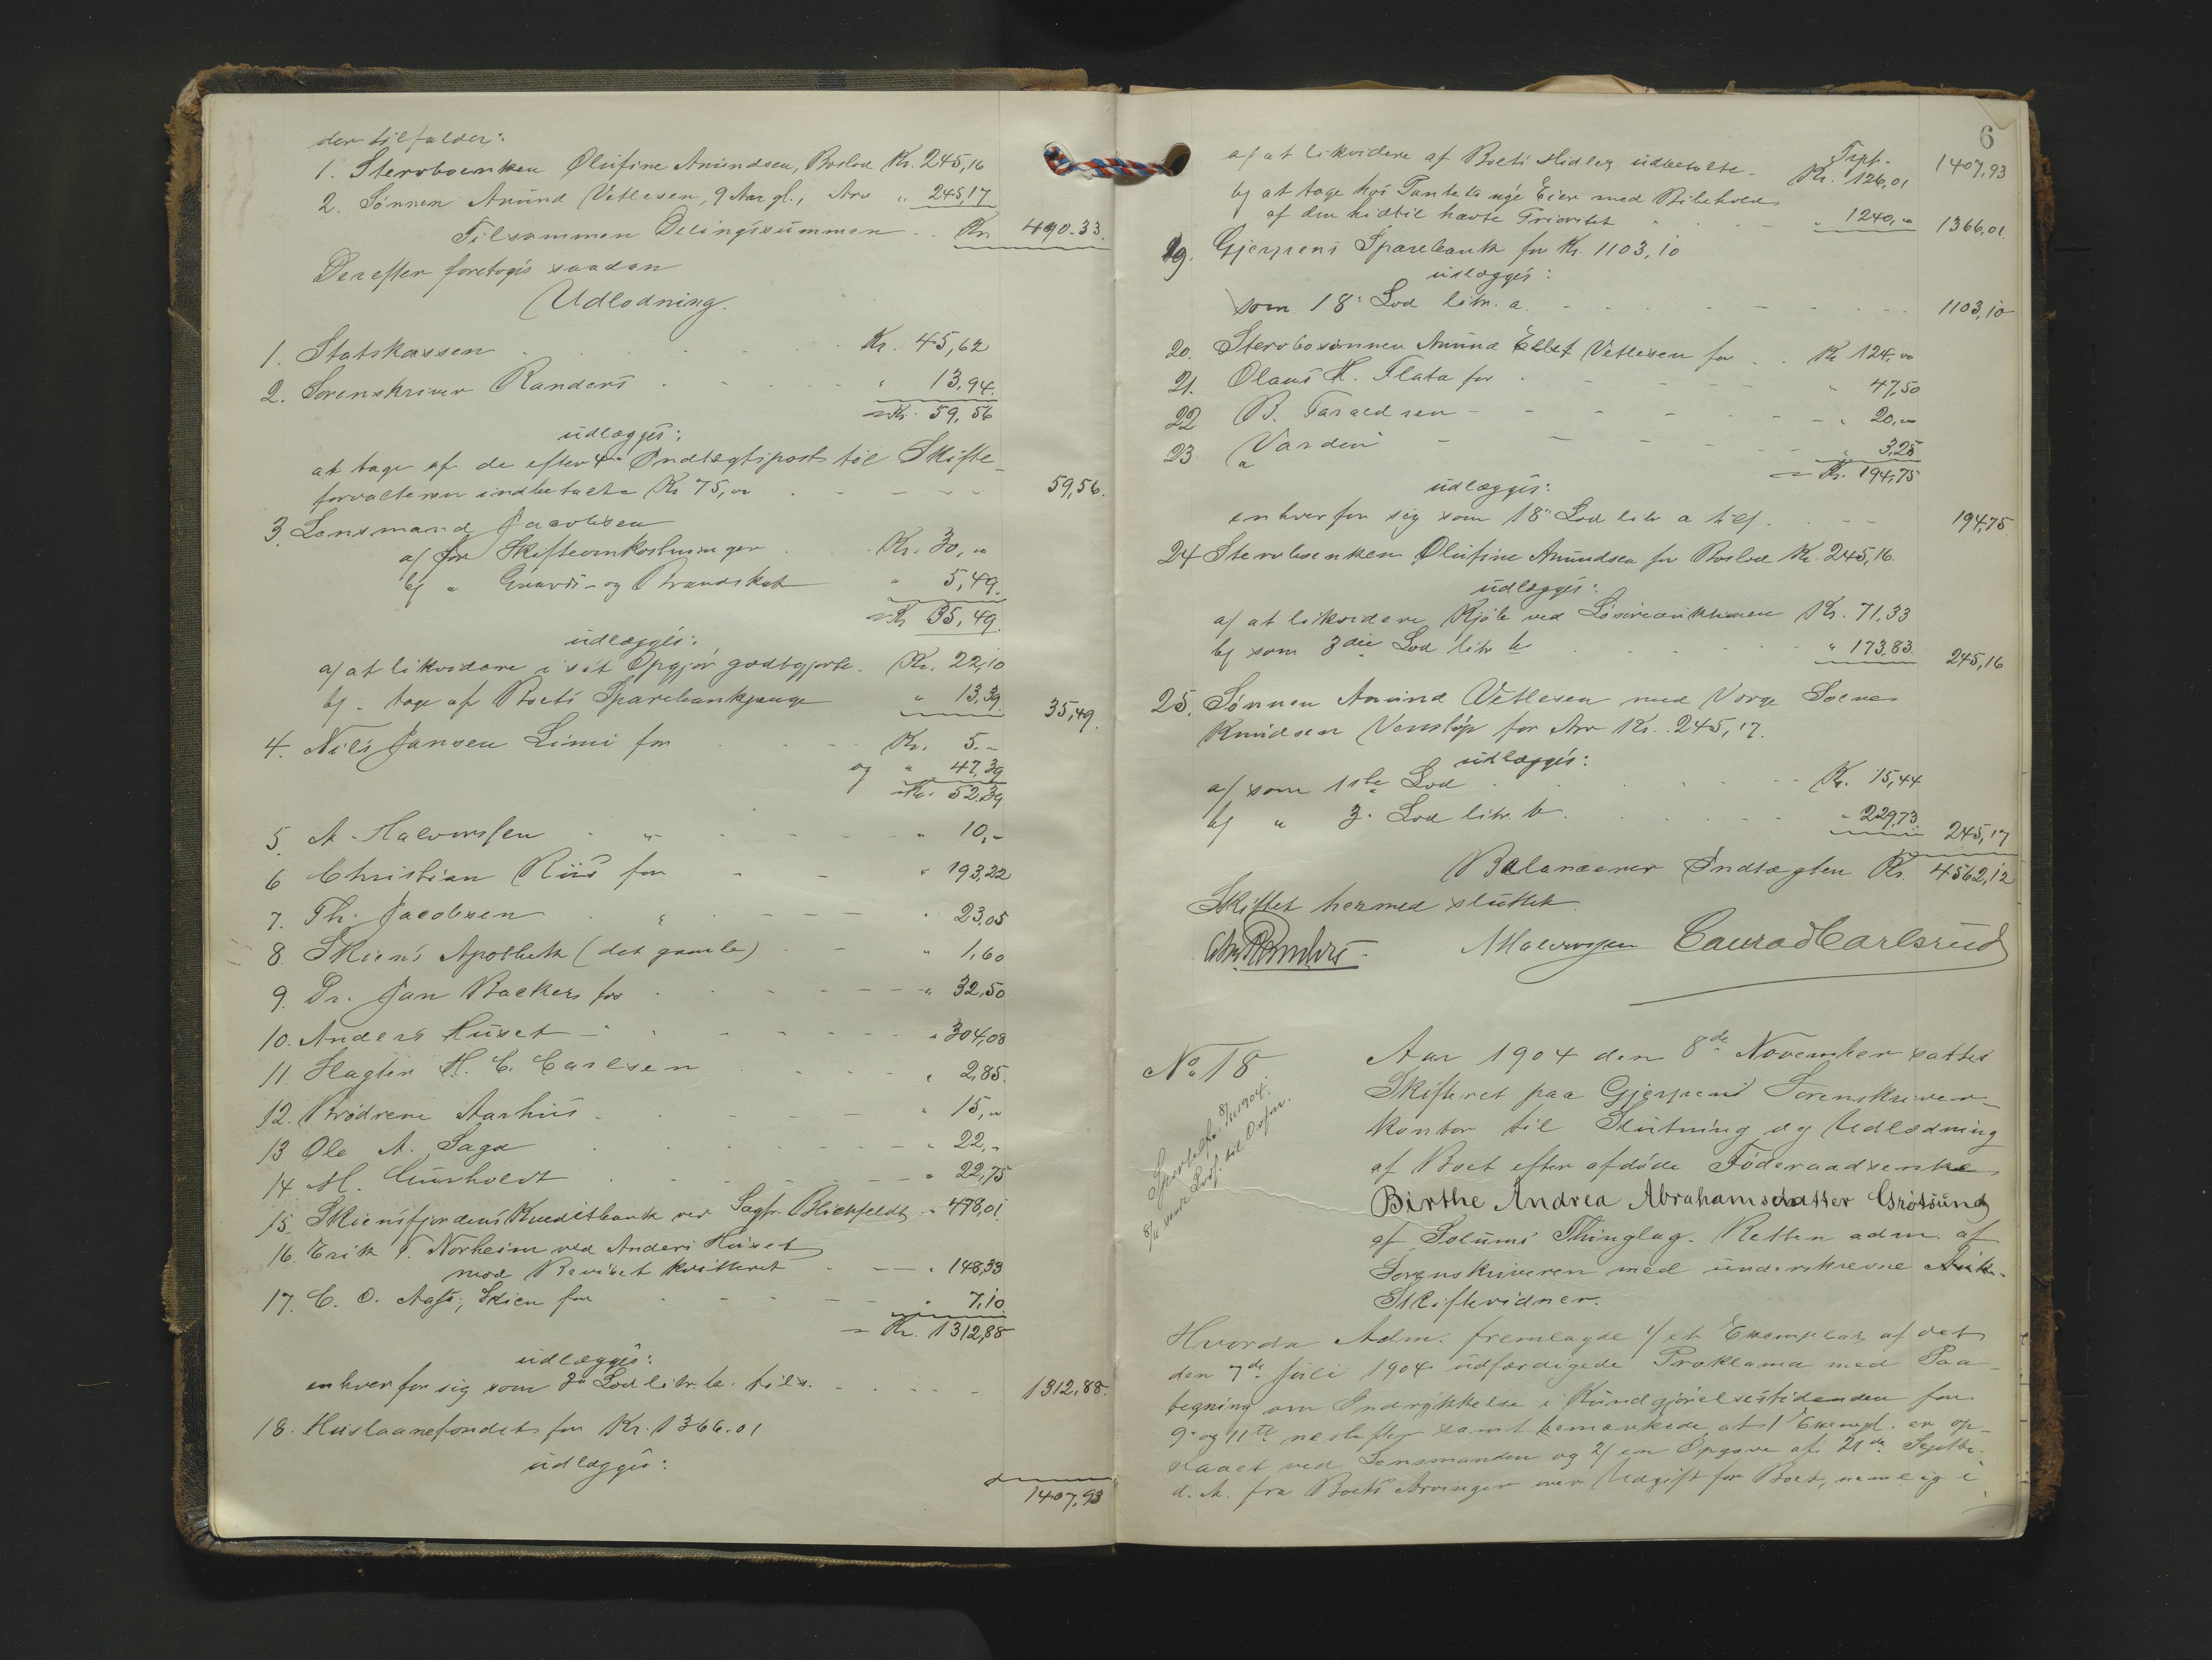 der tilfalder:
1. Stervboenken Olufine Amundsen, Boslod Kr. 245,16
2. Sønnen Amund Vetlesen, 9 Aar gl., Arv " 245,17
Tilsammen Delingssummen .. Kr. 490.33.
Derefter foretoges saadan
Udlodning.
1. Statskassen Kr. 45,62
2. Sorenskriver Randers " 13,94.
= Kr. 59,56
udlægges:
at tage af de efter 4de Indtægtspost til Skifte-
forvalteren indbetalte Kr 75,00 59,56.
3. Lensmand Jacobsen
a/ for Skifteomkostninger Kr. 30,00
b/ " Gravøl- og Brandskat " 5,49.
= Kr 35,49.
udlægges:
a/ at likvidere i sit Opgjør godtgjorte. Kr. 22,10
b/ " tage af Boets Sparebankpenge " 13,39. 35,49.
4. Nils Jansen Limi for Kr. 5.-
og " 47,39
= Kr. 52,39
5. A. Halvorsen " " 10,-
6 Christian Riis for " 193,22
7. Th. Jacobsen " " 23,05
8. Skiens Apothek (det gamle) " 1,60
9. Dr. Jan Backer for " 32,50
10. Anders Huset " " 304,08
11. Slagter H. C. Carlsen " 2,85.
12. Brødrene Aarhus " 15,00
13 Ole A. Saga " 22,-
14 M. Gurholdt " 22,75
15. Skiensfjordens Kreditbank ved Sagfr. Blickfeldt " 478,01
16. Erik T. Norheim ved Anders Huset
mod Beviset kvitteret " 148,33
17. C. O. Aass, Skien for " 7,10.
= Kr. 1312,88
udlægges:
enhver for sig som 3die Lod litr. b. tils. 1312,88.
18. Huslaanefondet for Kr. 1366.01
udlægges:
1407,93
6
Trpt. 1407,93
a/ at likvidere af Boets Midler udbetalte Kr. 126,01
b/ at tage hos Pantets nye Eier med Bibehold
af den hidtil havte Prioritet " 1240,00 1366,01.
19. Gjerpens Sparebank for Kr. 1103,10
udlægges:
som 18. Lod litr. a. 1103,10
20. Stervbosønnen Amund Ellef Vetlesen for .. Kr 124,00
21. Olaus H. Flata for " 47,50
22 B. Taraldsen " 20,00
23 "Varden" " 3,25
= Kr. 194,75
udlægges:
enhver for sig som 18de Lod litr a tils. 194,75
24 Stervboenken Olufine Amundsen for Boslod Kr. 245,16.
udlægges:
a/ at likvidere Kjøb ved Løsøreauktionen Kr. 71,33
b/ som 3die Lod litr b " 173,83. 245,16
25. Sønnen Amund Vetlesen med Værge
Knudsen Venstøp for Arv Kr. 245,17.
udlægges:
a/ som 1ste Lod Kr. 15,44
b/ " 3. Lod litr. b. " 229,73. 245,17
Balancerer Indtægten Kr. 4562,12
Skiftet hermed sluttet.
Chr. Randers. A Halvorsen Conrad Carlsrud
No 18.
8/11 1904.
Aar 1904 den 8de November sattes
Skifteret paa Gjerpens Sorenskriver-
kontor til Slutning og Udlodning
af Boet efter afdøde Føderaadsenke
Birthe Andrea Abrahamsdatter Grøtsund
af Solums Thinglag. Retten adm. af
Sorenskriveren med underskrevne
Skiftevidner.
Hvorda Adm. fremlagde 1/ et Exemplar af det
den 7de Juli 1904 udfærdigede Proklama med Paa-
tegning om Indrykkelse i Kundgjørelsestidenden for
9de og 11te næstefter samt bemærkede, at 1 Exempl. er op-
slaaet ved Lensmanden og 2/ en Opgave af 21de Septbr.
d. A. fra Boets Arvinger over Udgift for Boet, nemlig i